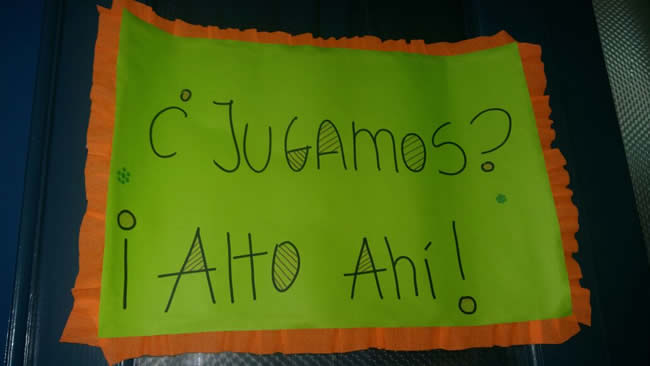 ¿Jugamos?
¡Alto Ahí!